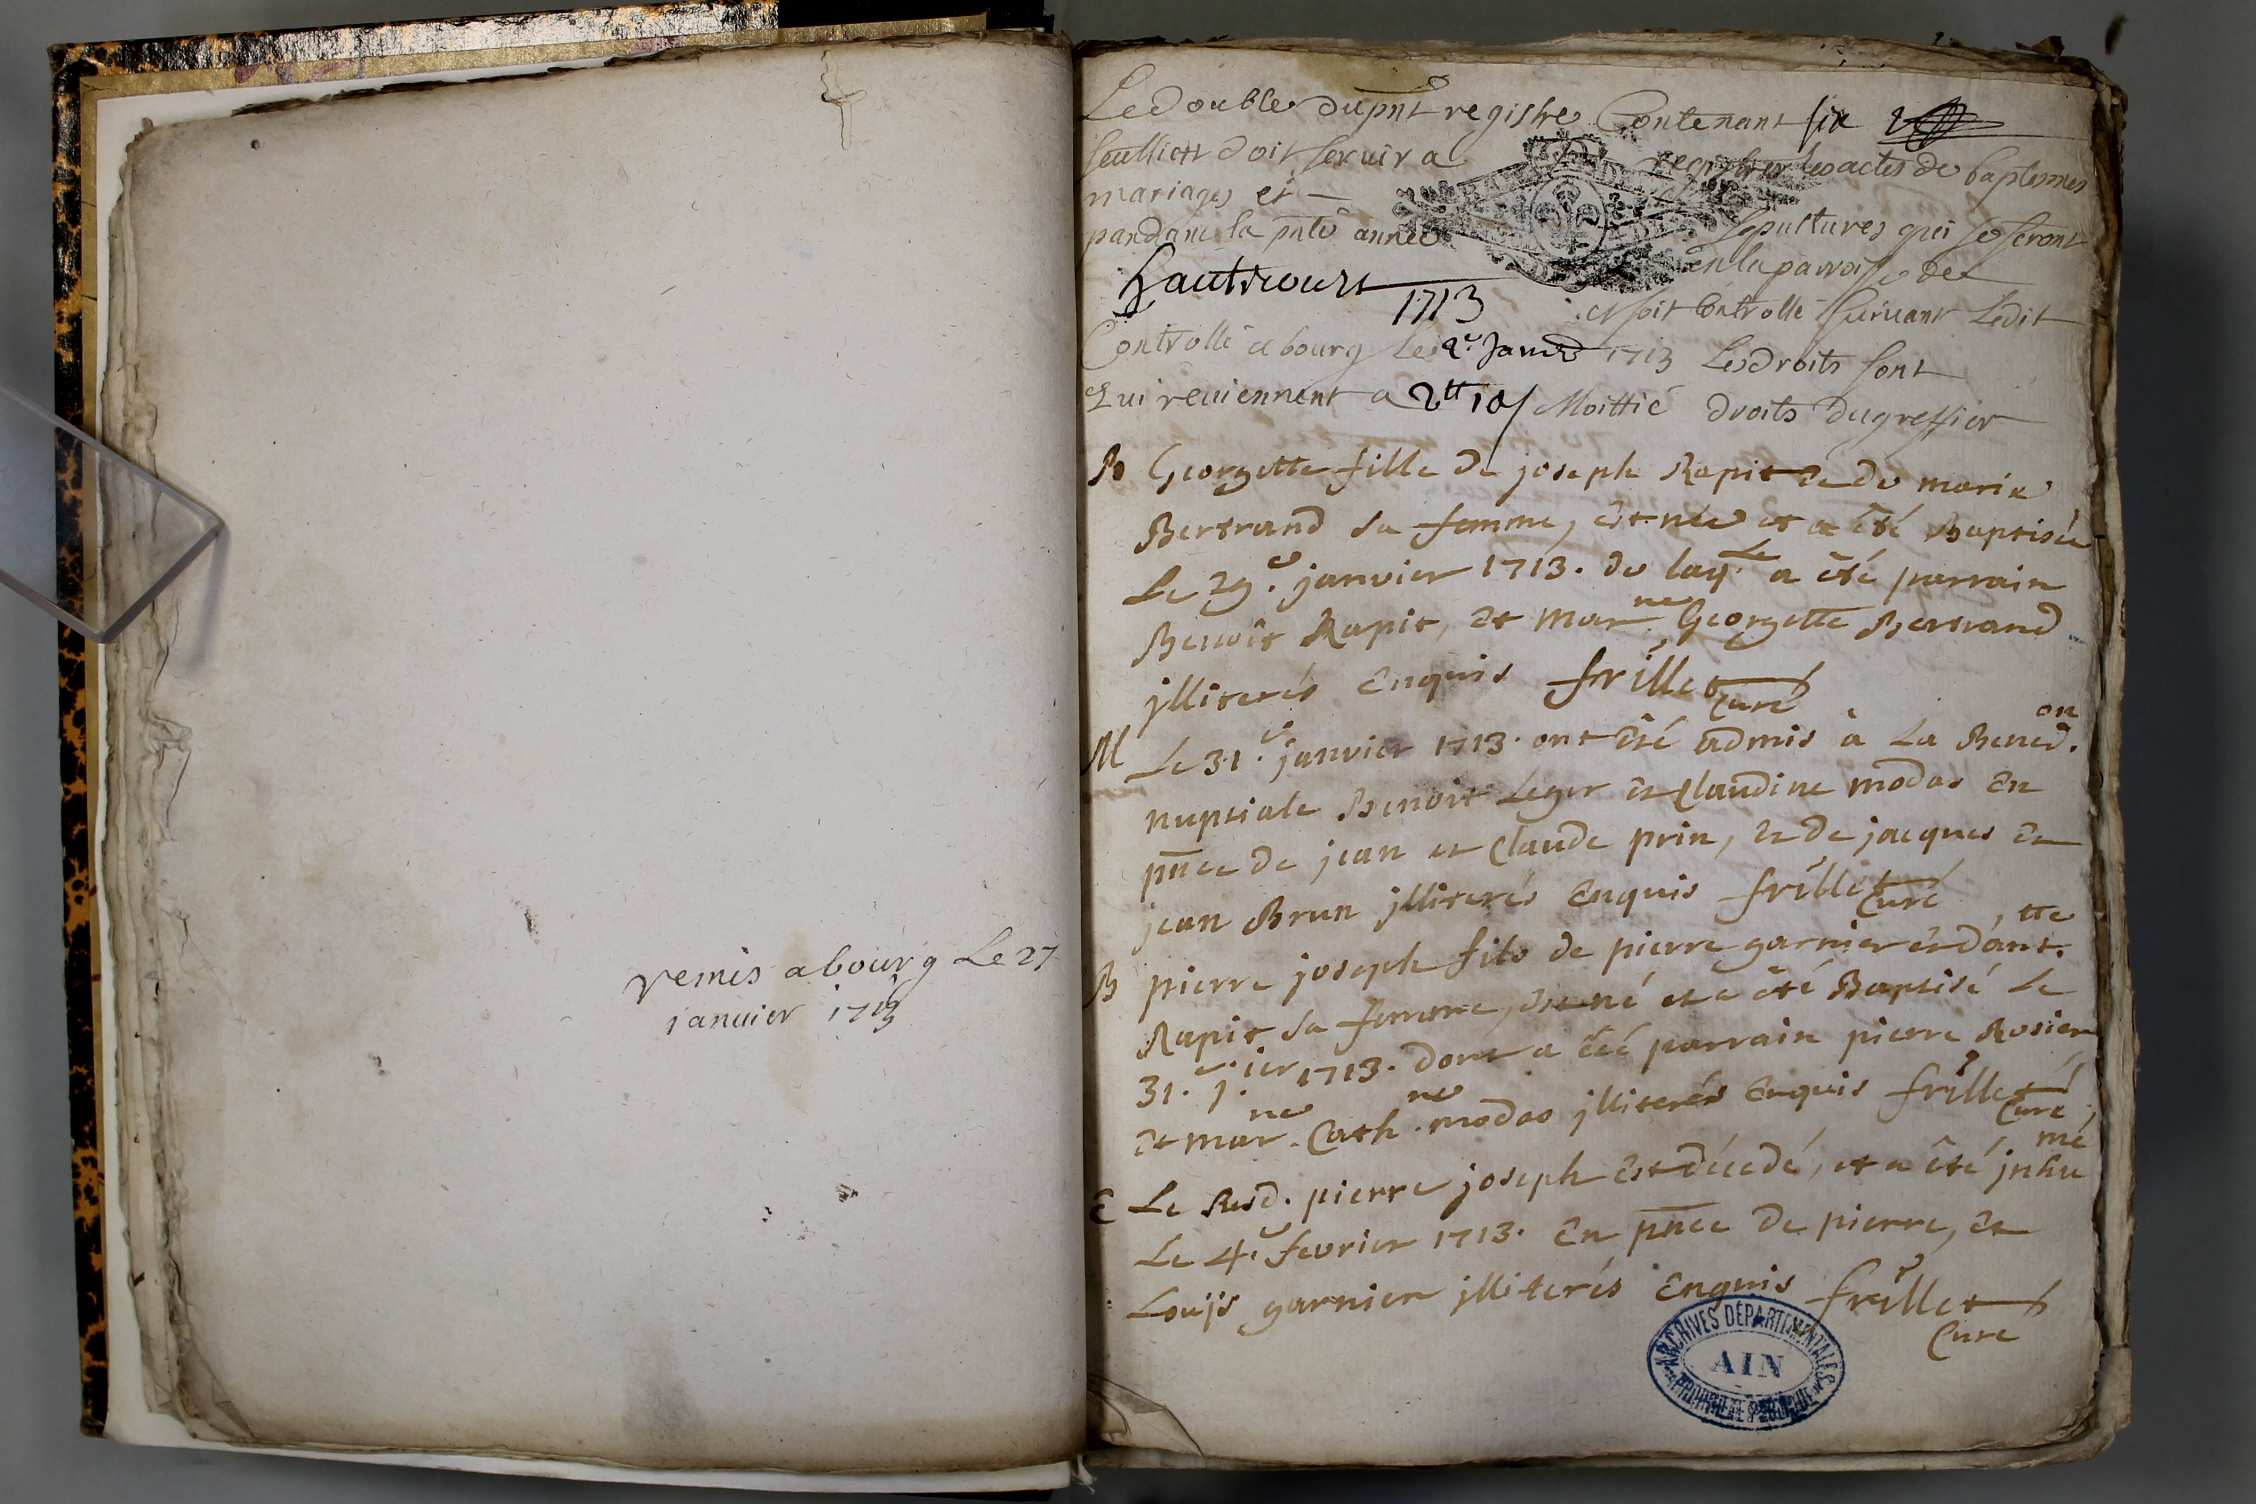 remis a bourg Le 27
januier 1713
Le double du pnt registre Contenant six
feulliets doit seruir a registrer les actes de baptesmes
mariages et sepultures qui se feront
pandant la pnte année en la parroisse de
hautecourt 1713 et soit Controllé suiuant Ledit
Controllé a bourg Le 2e Januer 1713 Les droits sont
Qui reuiennent a 2tt 10s Moittié droits du greffier
B Georgette fille de joseph Rapit et de marie
Bertrand sa femme, est née et a êté Baptisée
Le 29.e janvier 1713. de laq.le a êté parrain
Benoît Rapit, et mar.ne Georgette Bertrand
jlliterés Enquis frillet Curé
M Le 31.e janvier 1713. ont êté admis à La Bened.on
nuptiale Benoit Leger et Claudine modas En
pnce de jean et Claude prin, et de jacques et
jean Brun jlliterés Enquis frillet Curé
B pierre joseph fils de pierre garnier et d'ant.tte
Rapit sa femme, est né et a êté Baptisé Le
31.e j.ier 1713. dont a êté parrain pierre Rosier
et mar.ne Cath.ne modas jlliterés Enquis frillet Curé
E Le susd. pierre joseph Est décedé, et a êté jnhumé
Le 4.e fevrier 1713. En pnce de pierre, et
Louijs garnier jlliterés Enquis frillet
Curé
ARCHIVES DÉPARTEMENTALES
AIN